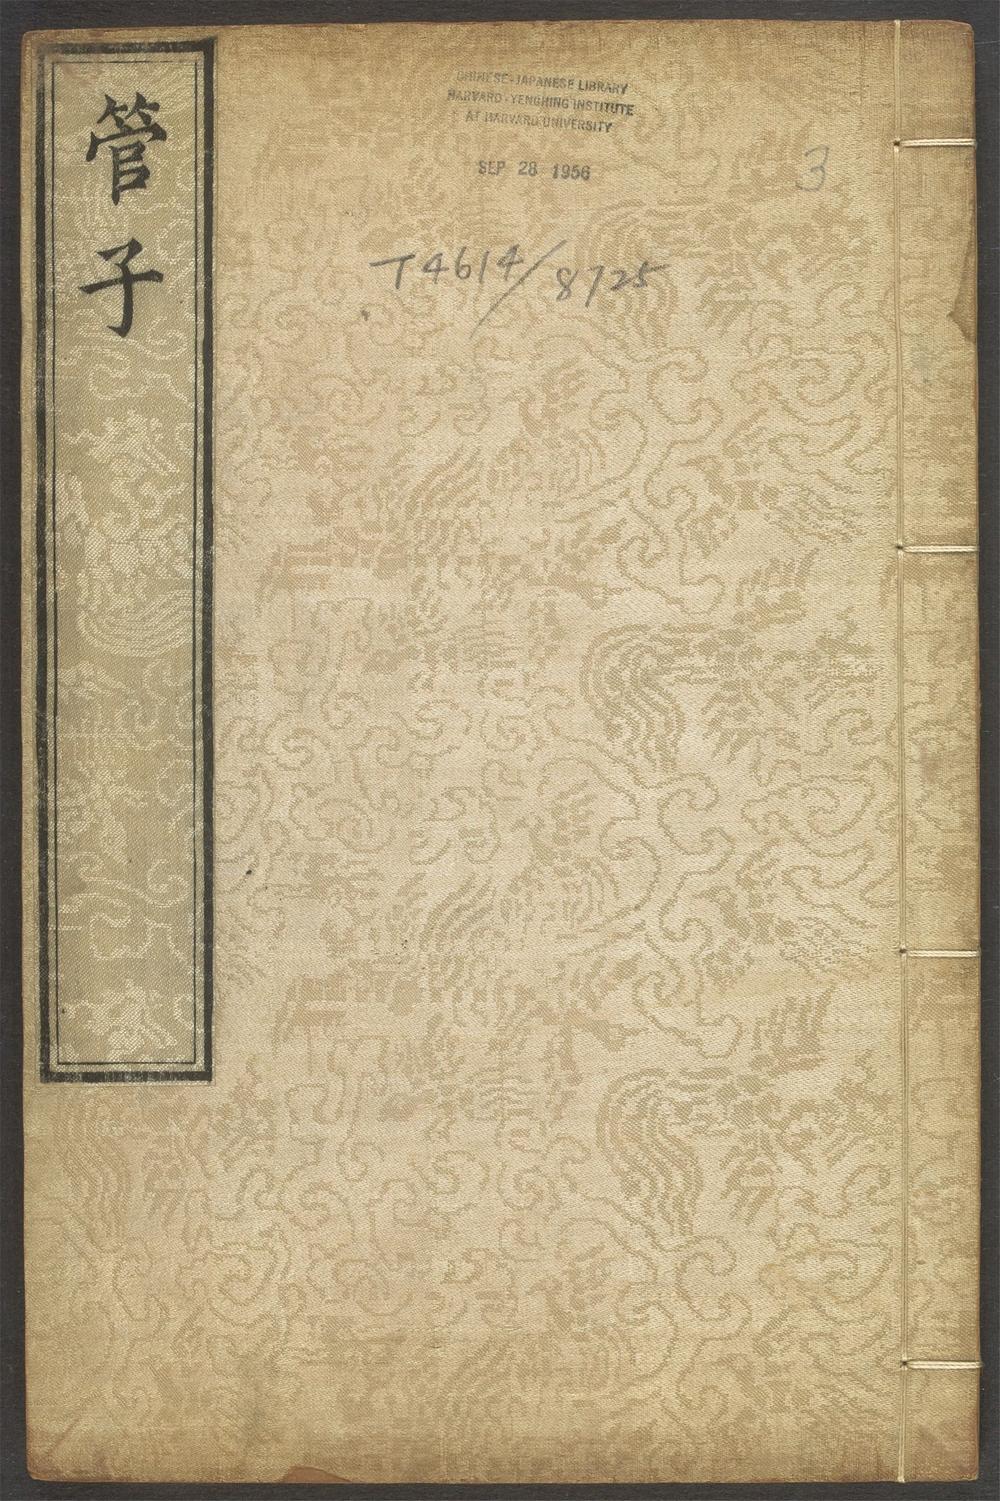 管子
CHINESE-JAPANESE LIBRARY
HARVARD-YENCHING INSTITUTE
AT HARVARD UNIVERSITY
SEP 28 1956
3
T4614/8725